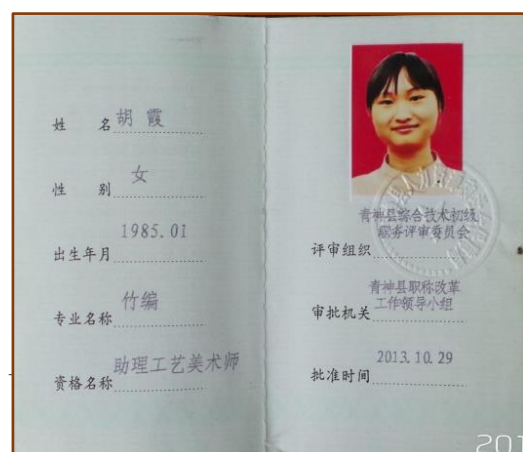 姓 名 胡 霞
性 别 女
出生年月 1985.01
专业名称 竹编
资格名称 助理工艺美术师
青神县综合技术初级
评审组织 职务评审委员会
青神县职称改革
审批机关 工作领导小组
批准时间 2013.10.29
201